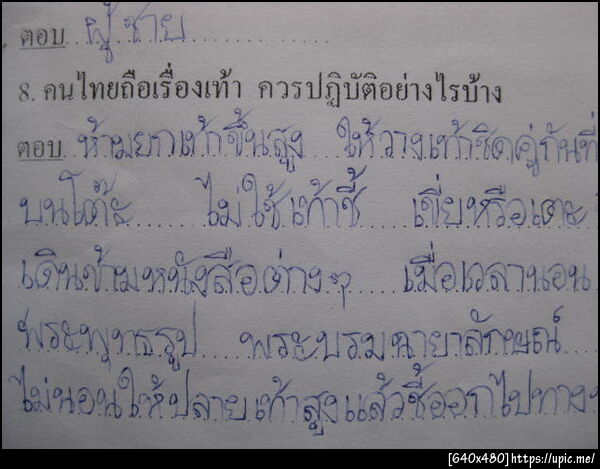 ตอบ ผู้ชาย
8. คนไทยถือเรื่องเท้า ควรปฏิบัติอย่างไรบ้าง
ตอบ ห้ามยกเท้าขึ้นสูง ให้วางเท้าชิดคู่กันที่
บนโต๊ะ ไม่ใช้เท้าชี้ เขี่ยหรือเตะ
เดินข้ามหนังสือต่างๆ เมื่อเวลานอน
พระพุทธรูป พระบรมฉายาลักษณ์
ไม่นอนให้ปลายเท้าสูงแล้วชี้ออกไปทาง
[640x480]https://upic.me/